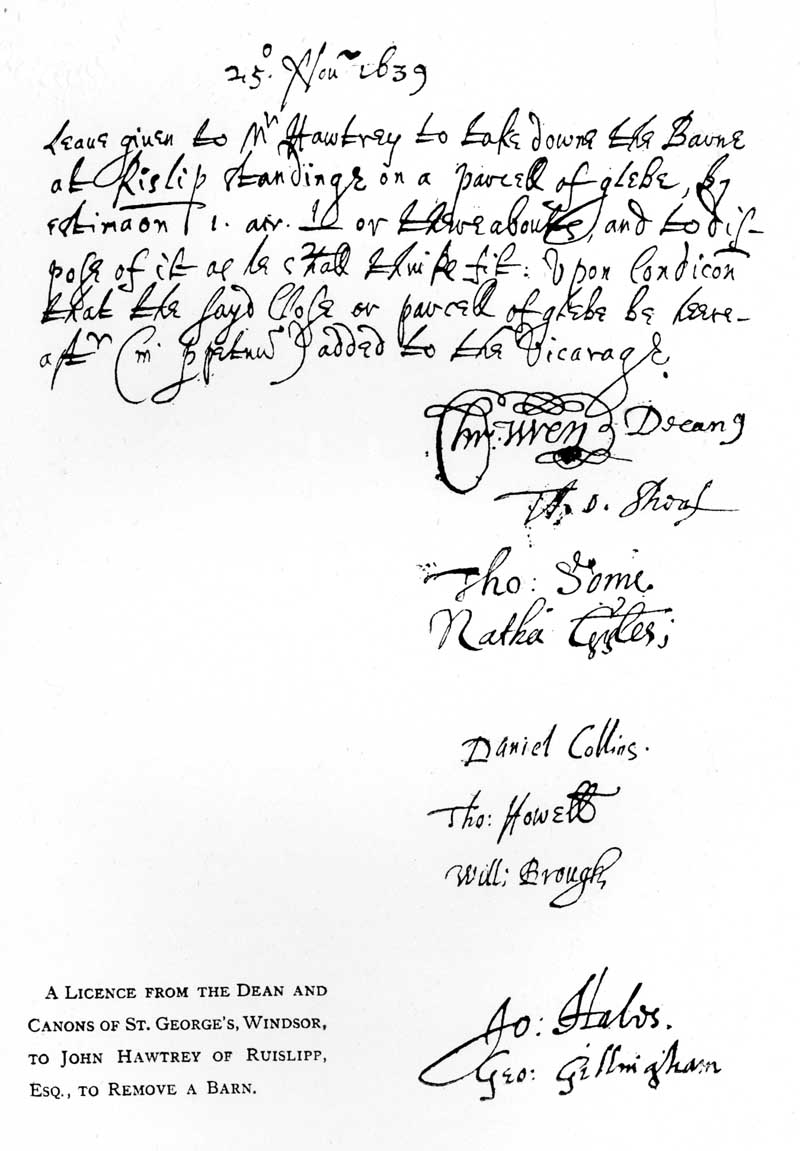 25o. Nou~ 1639
Leaue giuen to Mr Hawtrey to take downe the Barne
at Rislip standinge on a parcell of glebe, by
estimaon 1. acr. or thereabouts, and to dis-
pose of it as he shall thinke fit: Vpon Condicon
that the sayd Close or parcell of glebe be here-
aftr (in ppetuu) added to the Vicarage.
Chr: Wren Decan9
Tho: Some.
Natha Gyles;
Daniel Collins.
Tho: Howell
Will: Brough
Jo: Hales.
Geo: Gillingham
A LICENCE FROM THE DEAN AND
CANONS OF ST. GEORGE'S, WINDSOR,
TO JOHN HAWTREY OF RUISLIPP,
ESQ., TO REMOVE A BARN.